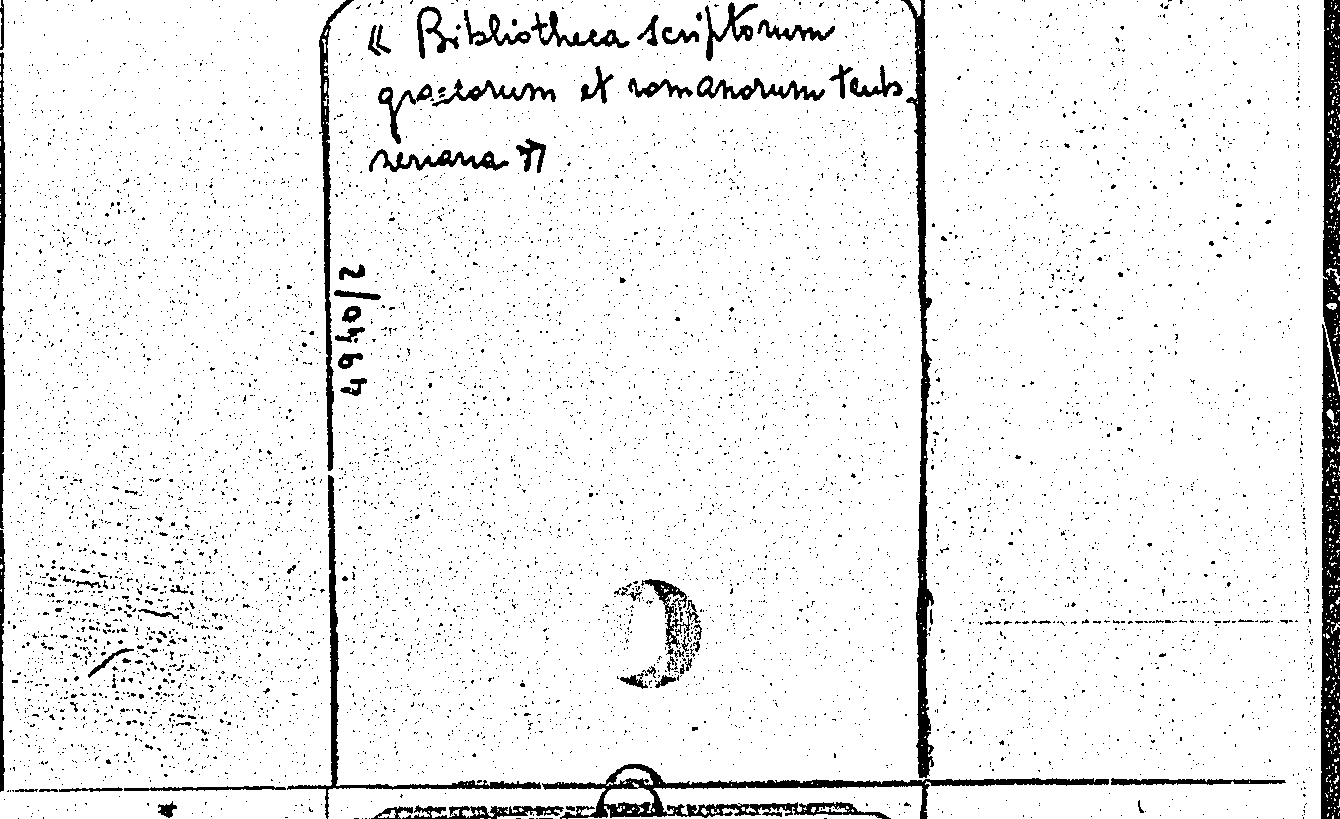 « Bibliotheca scriptorum
graecorum et romanorum teub-
neriana »
2/04/64